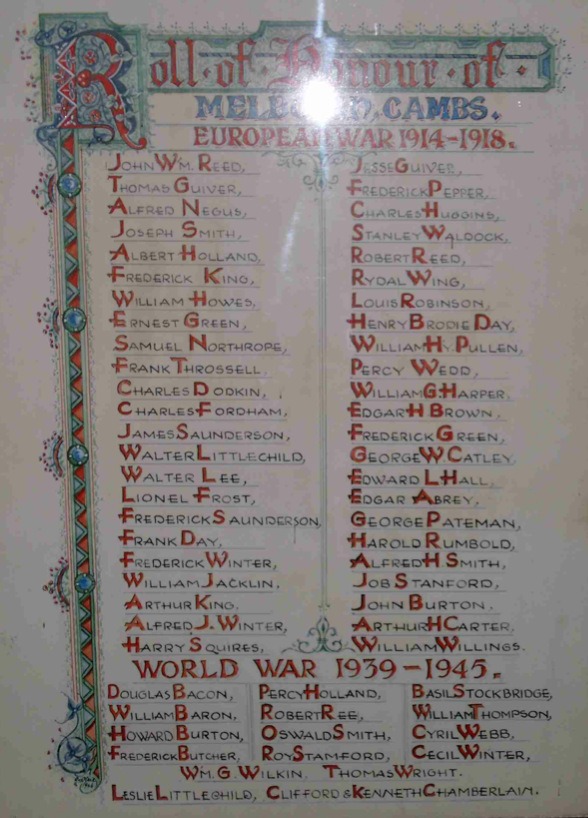 Roll · of · Honour · of ·
CAMBS.
EUROPEAN WAR 1914-1918.
JOHN WM. REED,
THOMAS GUIVER,
ALFRED NEGUS,
JOSEPH SMITH,
ALBERT HOLLAND,
FREDERICK KING,
WILLIAM HOWES,
ERNEST GREEN,
SAMUEL NORTHROPE,
FRANK THROSSELL,
CHARLES DODKIN,
CHARLES FORDHAM,
JAMES SAUNDERSON,
WALTER LITTLECHILD,
WALTER LEE,
LIONEL FROST,
FREDERICK SAUNDERSON,
FRANK DAY,
FREDERICK WINTER,
WILLIAM JACKLIN.
ARTHUR KING.
ALFRED J. WINTER,
HARRY SQUIRES,
JESSE GUIVER,
FREDERICK PEPPER,
CHARLES HUGGINS,
STANLEY WALDOCK,
ROBERT REED,
RYDAL WING,
LOUIS ROBINSON,
HENRY BRODIE DAY,
WILLIAM H. PULLEN,
PERCY WEDD,
WILLIAM G HARPER,
EDGAR H BROWN,
FREDERICK GREEN,
GEORGE W CATLEY,
EDWARD L HALL,
EDGAR ABREY,
GEORGE PATEMAN,
HAROLD RUMBOLD,
ALFRED H SMITH,
JOB STANFORD,
JOHN BURTON.
ARTHUR H CARTER,
WILLIAM WILLINGS.
WORLD WAR 1939-1945.
DOUGLAS BACON, PERCY HOLLAND, BASIL STOCKBRIDGE,
WILLIAM BARON, ROBERT REE, WILLIAM THOMPSON,
HOWARD BURTON, OSWALD SMITH, CYRIL WEBB,
FREDERICK BUTCHER, ROY STAMFORD, CECIL WINTER,
WM. G. WILKIN. THOMAS WRIGHT.
LESLIE LITTLECHILD, CLIFFORD & KENNETH CHAMBERLAIN.